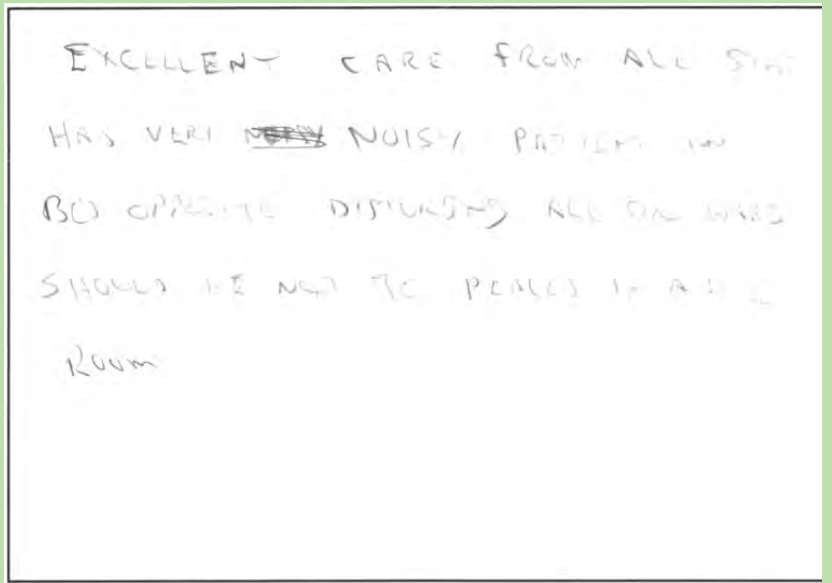 EXCELLENT CARE FROM ALL
HAS VERY NOISY PATIENT IN
BED OPPOSITE DISTURBING ALL ON WARD
SHOULD HE NOT BE PLACED IN A
ROOM